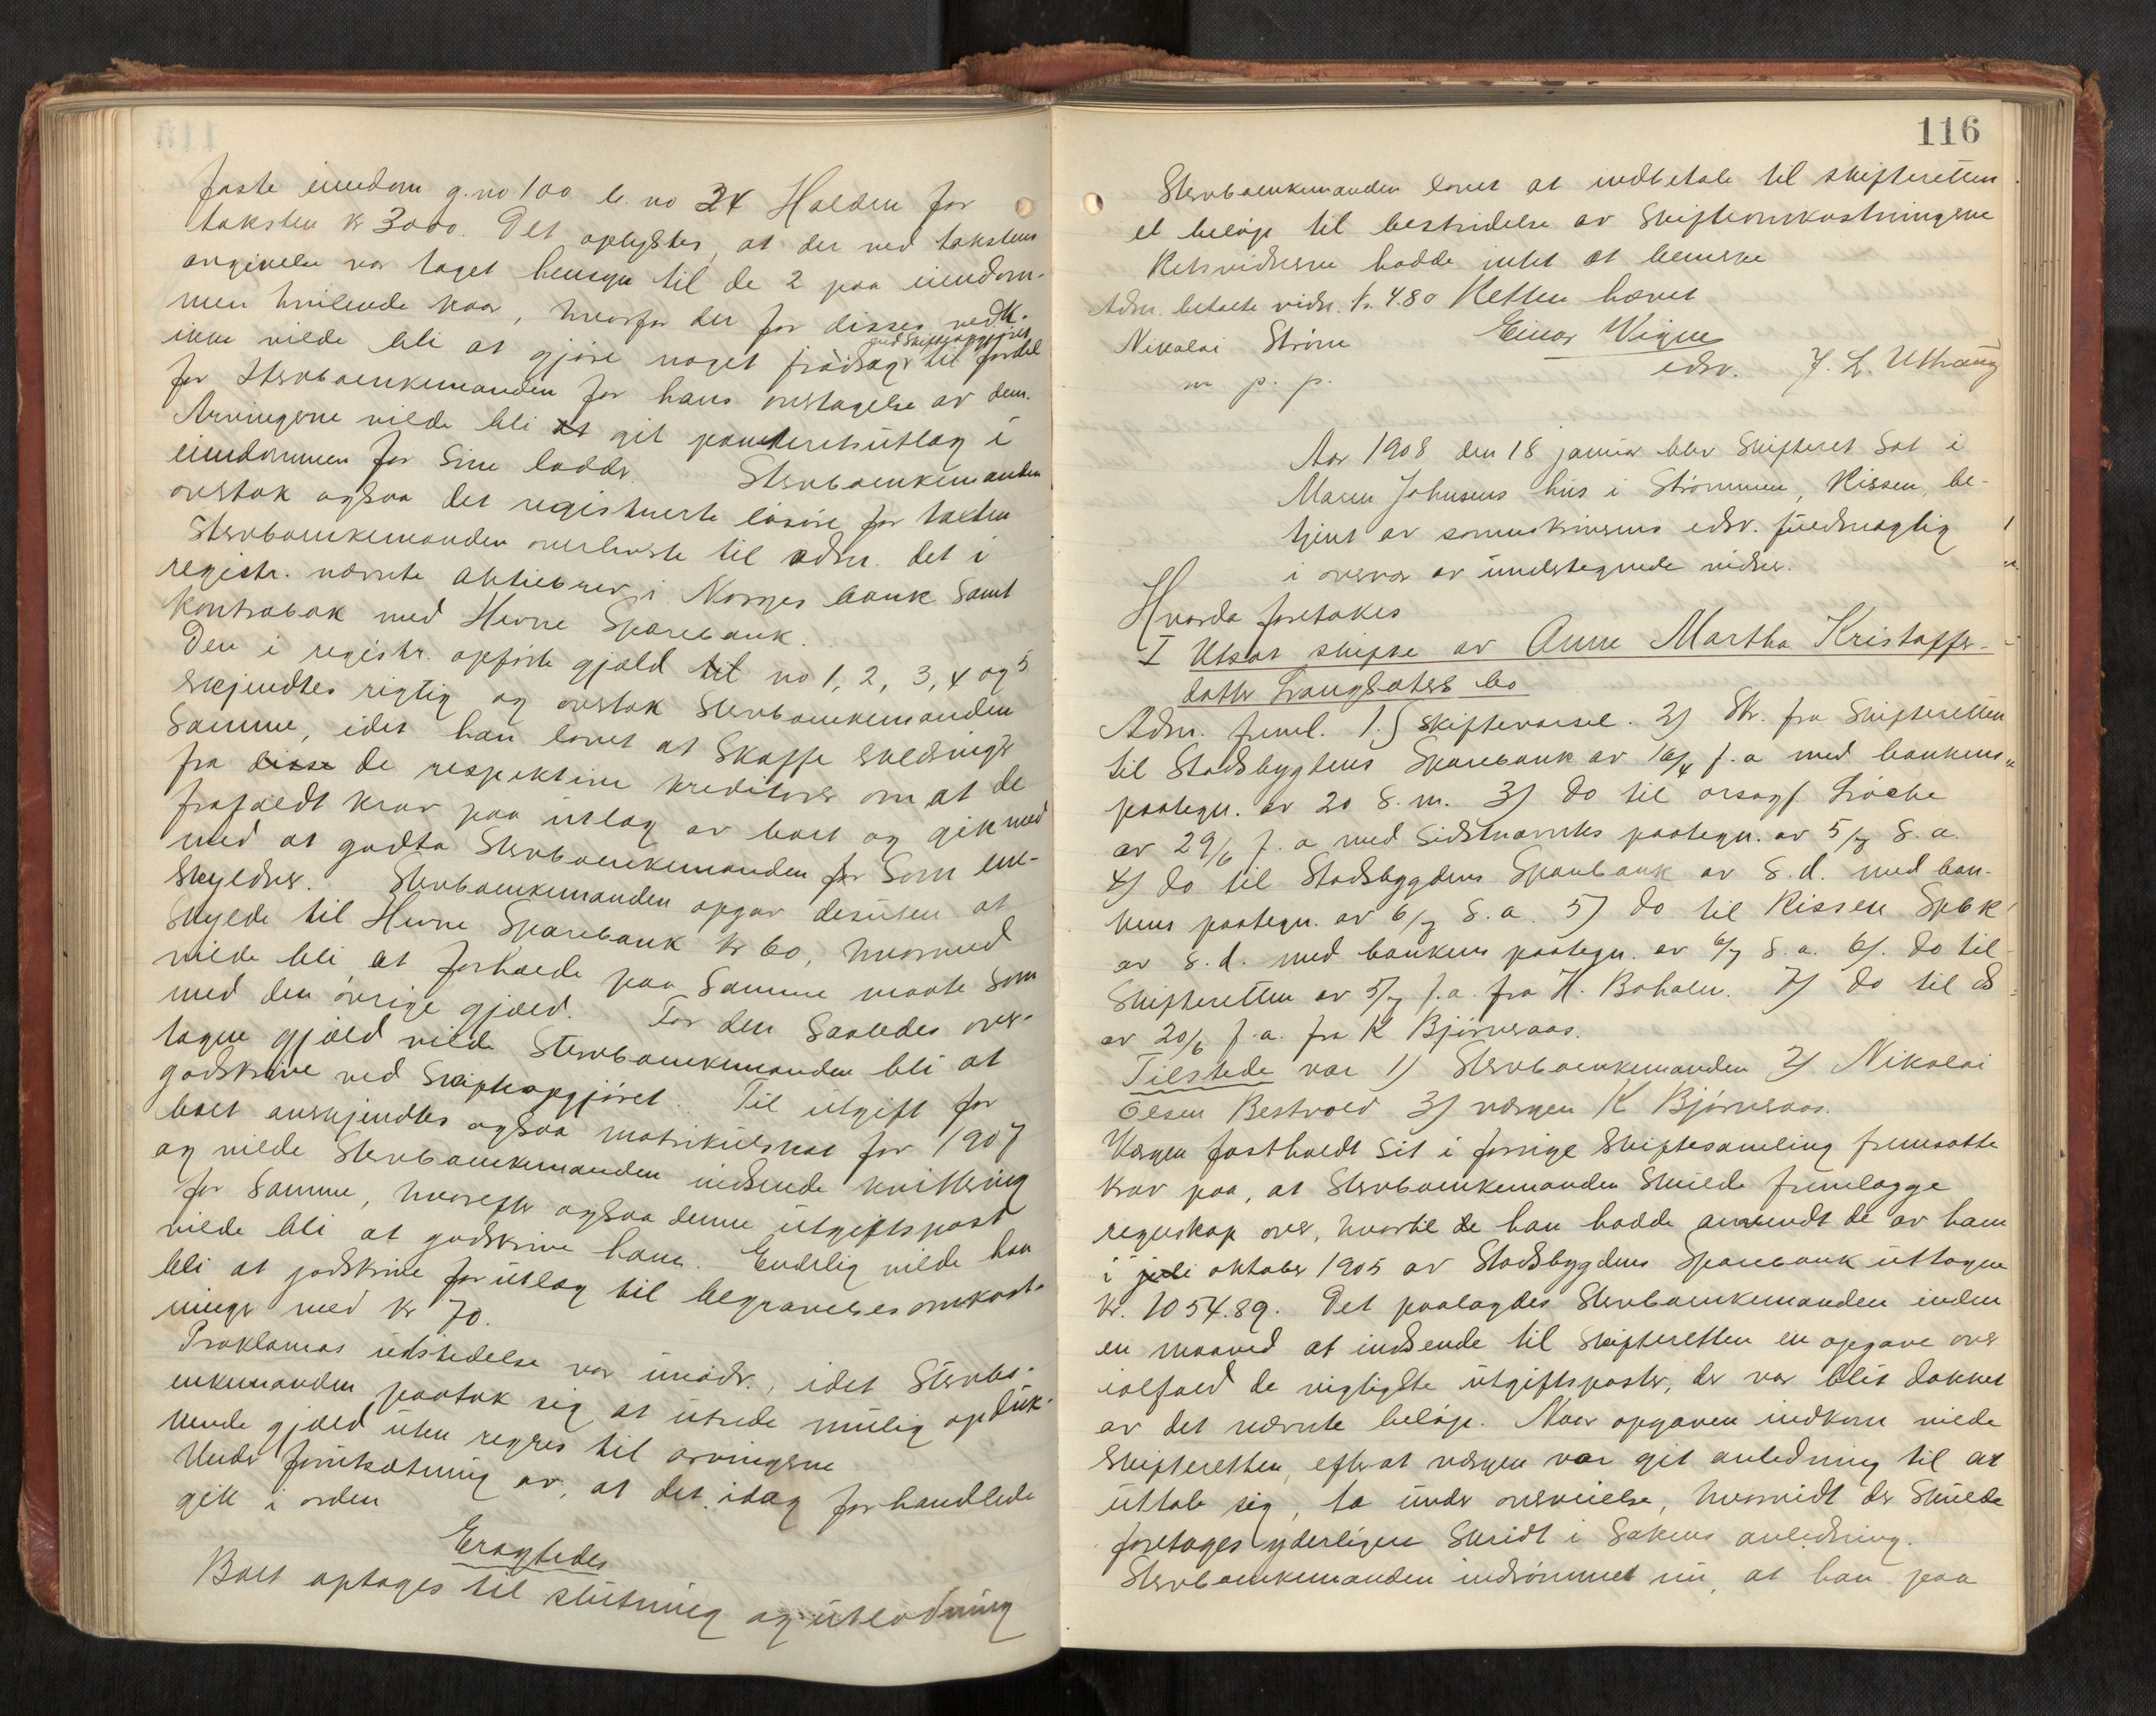 faste eiendom g.no 100 b. no 24 Halden for
taksten kr 3000. Det oplystes, at der ved takstens
angivelse var taget hensyn til de 2 paa eiendom-
men hvilende kaar, hvorfor der for disses vedk.
ikke vilde bli at gjøre noget fradrag ved skifteopgjøret til fordel
for Sterboenkemanden for hans overtagelse av dem.
Arvingerne vilde bli at git panteretsutlæg i
eiendommen for sine lodder. Sterboenkemanden
overtok ogsaa det registrerte løsøre for taxten
Sterboenkemanden overleverte til adm. det i
registr. nævnte aktiebrev i Norges bank samt
Kontrabok med Hevne Sparebank.
Den i registr. opførte gjæld til no 1, 2, 3, 4 og 5
erkjendtes rigtig og overtok Sterboenkemanden
samme, idet han lovet at skaffe erklæringer
fra disse de respektive kreditorer om at de
frafaldt krav paa utlæg av boet og gik med
med at godta Sterboenkemanden for som ene-
skyldner. Sterboenkemanden opgav desuten at
skylde til Hevne Sparebank kr 60, hvormed
vilde bli at forholde paa samme maate som
med den øvrige gjæld. For den saaledes over-
tagne gjæld vilde Sterboenkemanden bli at
godskrive ved skifteopgjøret. Til utgift for
boet anerkjendtes ogsaa matrikulskat for 1907
og vilde Sterboenkemanden indsende kvittering
for samme, hvorefter ogsaa denne utgiftspost
vilde bli at godskrive ham. Endelig vilde han
bli at godskrive for utlæg til begravelsesomkost-
ninger med kr 70.
Proklamas utstedelse var unødv., idet Sterbo-
enkemanden paatok sig at utrede mulig opduk-
kende gjæld uten regres til arvingerne
Under forutsætning av, at det idag forhandlede
gik i orden
Eragtedes
Boet optages til slutning og utlodning
116
Sterboenkemanden lovet at indbetale til skifteretten
et beløp til bestridelse av skifteomkostningerne
Retsvidnerne hadde intet at bemerke
Adm. betalte vidn. kr. 4.80 Retten hævet
Nikolai Strøm Einar Vigne
m p. p. edsv. J. L. Uthaug
Aar 1908 den 18 januar blev Skifteret sat i
Maren Johnsens hus i Strømmen, Rissen, be-
tjent av sorenskriverens edsv. fuldmægtig
i overvær av undertegnede vidner.
Hvorda foretokes
I Utsat skifte av Anne Martha Kristoffer-
datter Langsæters bo
Adm. freml. 1.) skiftevarsel. 2) Skr. fra Skifteretten
til Stadsbygdens Sparebank av 16/4 f.a med bankens
paategn. av 20 s.m. 3) do til orsagf. Løche
av 29/6 f.a med sidstnævntes paategn. av 5/7 s.a.
4) do til Stadsbygdens Sparebank av s.d. med ban-
kens paategn. av 6/7 s.a. 5) do til Rissen Spbk
av s.d. med bankens paategn. av 6/7 s.a. 6). do til
Skifteretten av 5/7 f.a. fra H. Baholm. 7) do til do
av 20/6 f.a. fra K Bjørnraas.
Tilstede var 1) Sterboenkemanden 2) Nikolai
Olsen Bestvold 3) vergen K Bjørnraas.
Vergen fastholdt sit i forrige Skiftesamling fremsatte
krav paa, at Sterboenkemanden skulde fremlægge
regnskap over, hvortil de han hadde anvendt de av ham
i juli oktober 1905 av Stadsbygdens Sparebank uttagne
kr. 1054.89. Det paalagdes Sterboenkemanden inden
en maaned at indsende til skifteretten en opgave over
ialfald de vigtigste utgiftsposter, der var blit dækket
av det nævnte beløp. Naar opgaven indkom vilde
Skifteretten, efterat vergen var git anledning til at
uttale sig, ta under overveielse, hvorvidt der skulde
foretages yderligere skridt i sakens anledning.
Sterboenkemanden indrømmet nu, at han paa